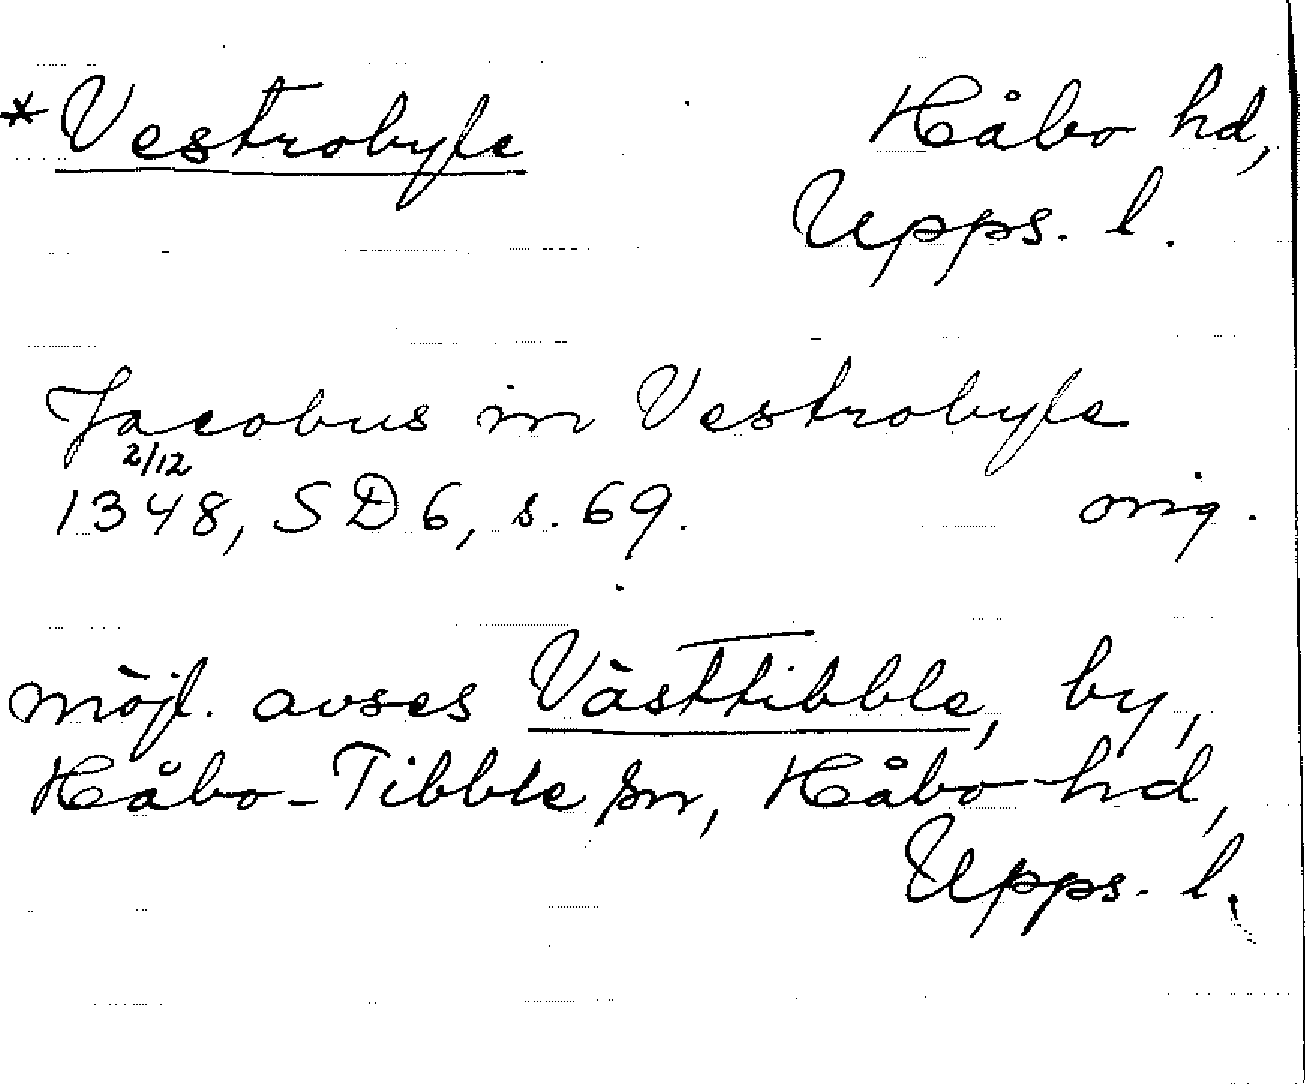 *Vestrobyle
Håbo hd,
Upps. l.
Jacobus in Vestrobyle
2/12
1348, SD 6, s. 69. orig.
möjl. avses Västtibble, by,
Håbo-Tibble sn, Håbo hd,
Upps. l.